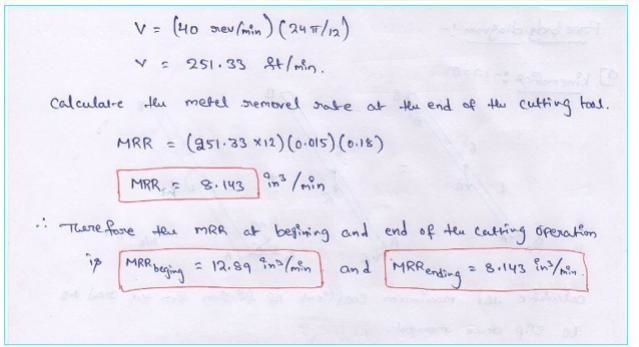 V = (40 rev/min) (24π/12)
V = 251.33 ft/min.
Calculate the metel removel rate at the end of the cutting tool.
MRR = (251.33 ×12) (0.015) (0.18)
MRR = 8.143 in³/min
∴ Therefore the MRR at begining and end of the cutting operation
is MRR beging = 12.89 in³/min and MRR ending = 8.143 in³/min.